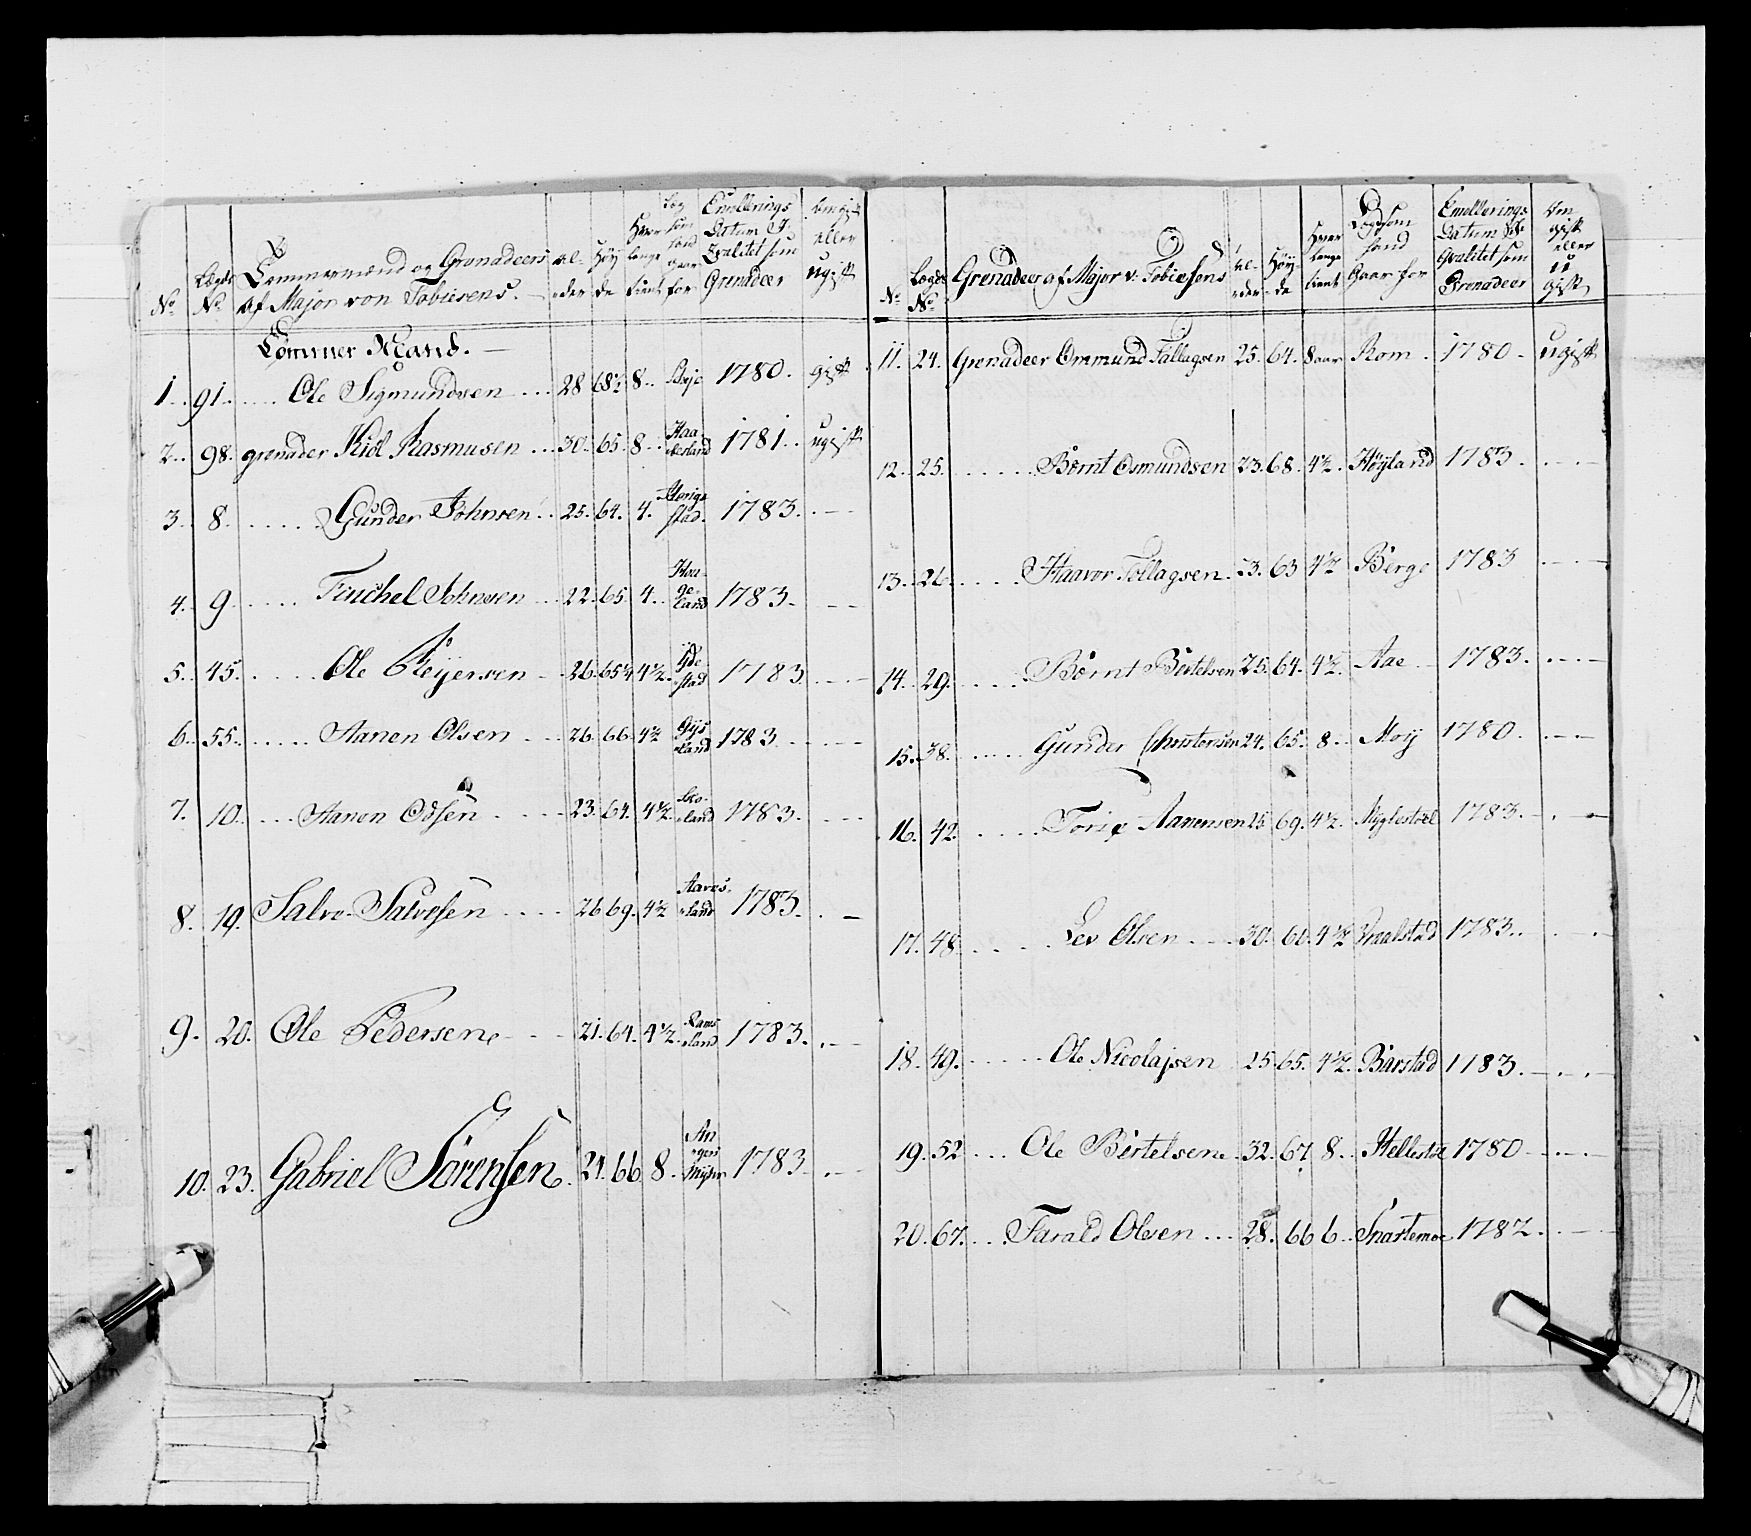 No
Lægds No
Tømmermænd og Grenadeers af Major von Tobiesens.
al-der
Høy-de
Hvor lenge tient
Enrollerings Datum I Qvalitet som Grenadeer
om gift eller ugift
Tømmer Mand.
1. 91. Ole Sigmundsen 28 68½ 8. 1780. gift
2. 98. grenader Kiel Rasmusen 30. 65. 8. 1781. ugift
3. 8. Gunder Johnsen 25. 64. 4. 1783. —
4. 9 Johnsen 22. 65. 4. Haa-ge-land 1783. —
5. 45. Ole Reyersen 26. 65¼ 4½. 1783 —
6. 55. Aanen Olsen 26. 66. 4½ 1783 —
7. 10. Aanen Odsen 23. 64. 4½. 1783. —
8. 19. Salve Salvesen 26 69. 4½ 1783. —
9. 20. Ole Pedersen 21. 64. 4½. 1783. —
10. 23. Gabriel Sørensen 21. 66 8. 1783 —
No
Lægds No
Grenadeer af Major v. Tobiesens
al-der
Høy-de
Hvor lenge tient
Lægd som stand Gaar for
Enrollerings Datum Qvalitet som Grenadeer
Om gift eller u gift
11. 24. Grenadeer Ommund Tallagsen 25. 64. 8 aar Rom 1780 ugift
12. 25. Børnt Osmundsen 23. 68. 4½. Høyland 1783. —
13. 26. Haavor Tollagsen 23. 63 4½ Berge 1783 —
14. 29. Børnt Bertelsen 25. 64. 4½. Aae 1783. —
15. 38. Gunder Christensen 24. 65. 8. Moy 1780. —
16. 42. Aanensen 25 69. 4½. 1783. —
17. 48. Lev Olsen 30. 4½ 1783. —
18. 49. Ole Nicolajsen 25 65. 4½. Barstad 1783. —
19. 52 Ole Bertelsen 32. 67. 8. 1780 —
20. 67. Tarald Olsen 28. 66 6. Snartemoe 1782. —